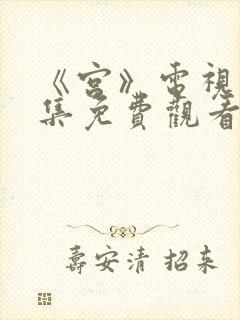 《宮》電視
集免費觀看
壽安清 招来